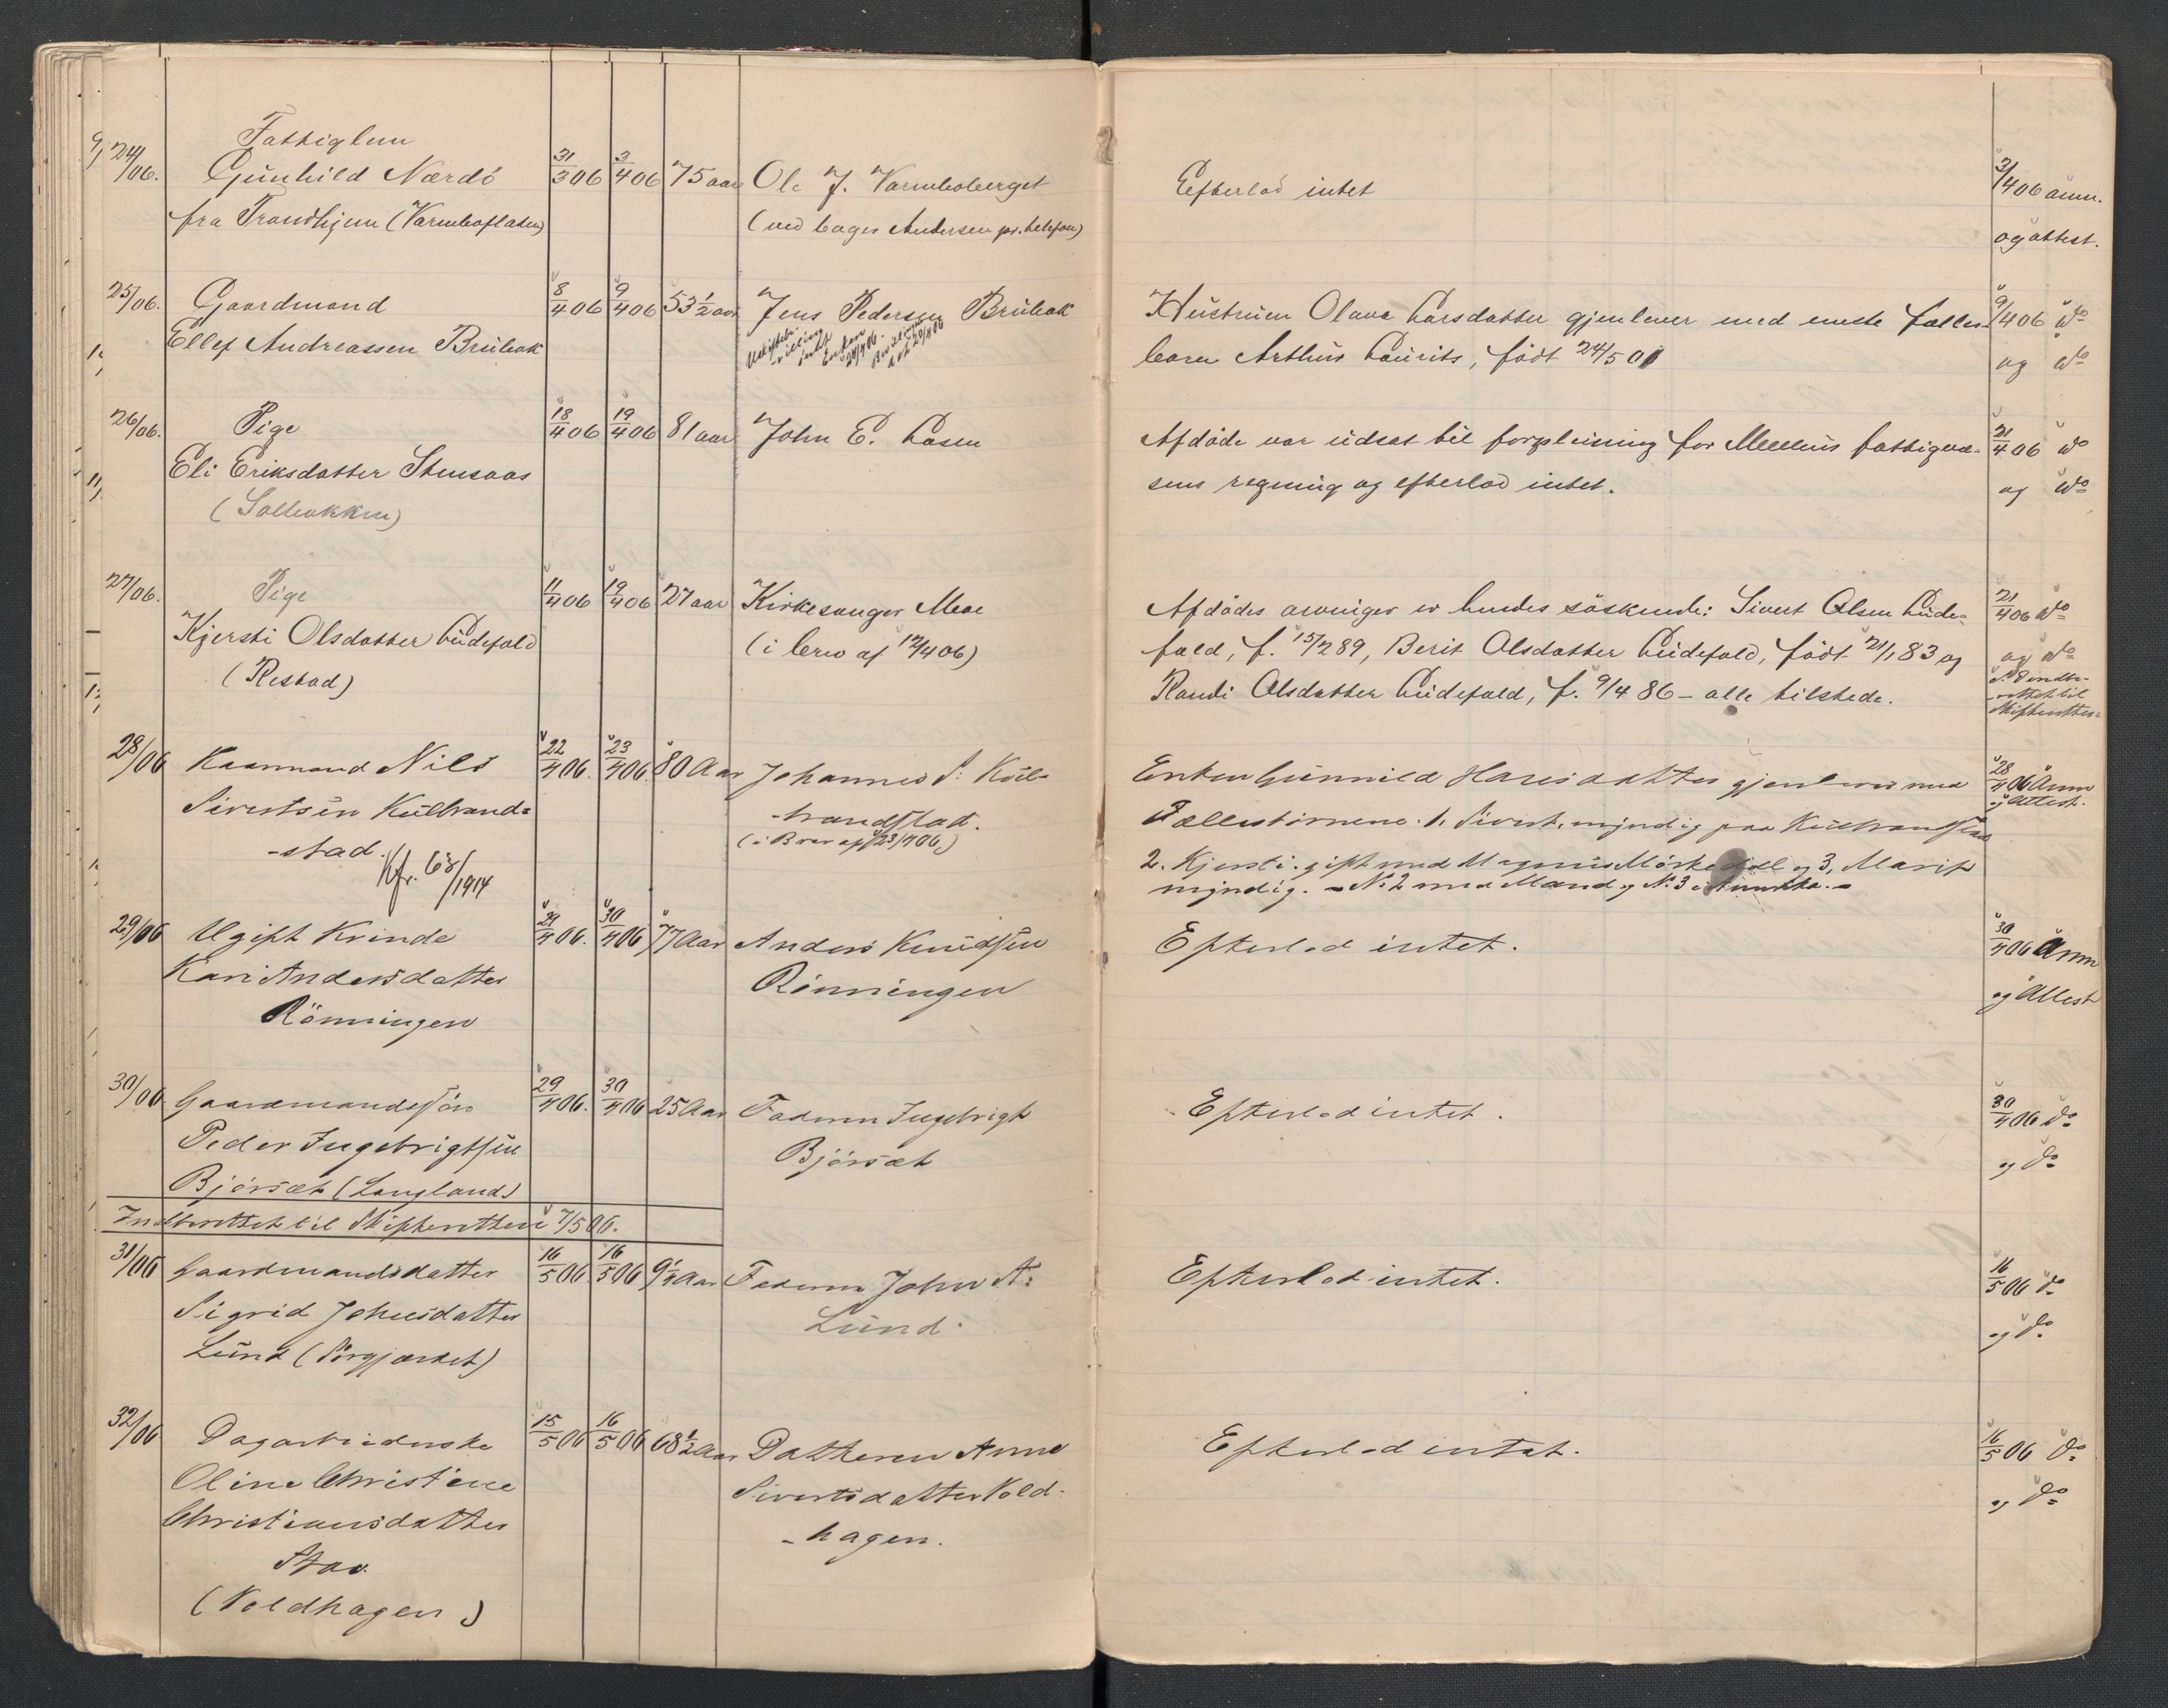 24/06. Fattiglem 31/3 06 3/4 06 75 aar
Gunhild Nærdö Ole J. Varmboberget Efterlod intet 3/4 06 anm.
fra Trondhjem (Varmboflaten) (ved bager Andersen pr. telefon) og attest.
25/06. Gaardmand 8/4 06 9/4 06 53 1/2 aar Jens Pedersen Brubak Hustruen Olava Larsdatter gjenlever med eneste fælles- 9/4 06 do
Ellef Andreassen Brubak barn Arthur Laurits, född 24/5 01 og do
26/06. Pige 18/4 06 19/4 06 81 aar John E. Aasen Afdöde var udsat til forpleining for Melhus fattigvæ- 21/4 06 do
Eli Eriksdatter Stensaas sens regning og efterlod intet. og do
(Solbakken)
27/06. Pige 11/4 06 19/4 06 27 aar Kirkesanger Moe Afdödes arvinger er hendes söskende: Sivert Olsen Lude- 21/4 06 do
Kjersti Olsdatter Ludefald (i brev af 17/4 06) fald, f. 15/2 89, Berit Olsdatter Ludefald, född 21/1 83 og og do
(Restad) Randi Olsdatter Ludefald, f. 9/4 86 – alle tilstede. Indbe-
rettet til
Skifteretten
28/06 Kaarmand Nils 22/4 06. 23/4 06. 80 Aar Johannes S. Kul- Enken Gunnild Hansdatter gjenlever med 28/4 06 Anm
Sivertsen Kulbrand- brandstad. Fællesbörnene: 1. Sivert, myndig paa Kulbrandstad og Attest.
-stad. (i Brev af 23/4 06) 2. Kjersti. gift med Magnus og 3, Marit
Kfr. 63/1914 myndig. – No 2 med Mand og No 3 i Amerika. –
29/06 Ugift Kvinde 29/4 06. 30/4 06 77 Aar Anders Knudsen Efterlod intet. 30/4 06 Anm
Kari Andersdatter Rönningen og Attest
Rönningen
30/06 Gaardmandssön 29/4 06. 30/4 06 25 Aar Faderen Ingebrigt Efterlod intet. 30/4 06 do
Peder Ingebrigtsen Björsæt og do
Björsæt (Langland)
Indberettet til Skifteretten 7/5 06.
31/06 Gaardmandsdatter 16/5 06 16/5 06 9 1/4 Aar Faderen John A. Efterlod intet. 16/5 06 do
Sigrid Johnsdatter Lund. og do
Lund (Sörgjærdet)
32/06 Dagarbeiderske 15/5 06 16/5 06 68 1/2 Aar Datteren Anne Efterlod intet. 16/5 06 do
Oline Christine Sivertsdatter Vold- og do
Christiansdatter -hagen.
Stav
(Voldhagen)